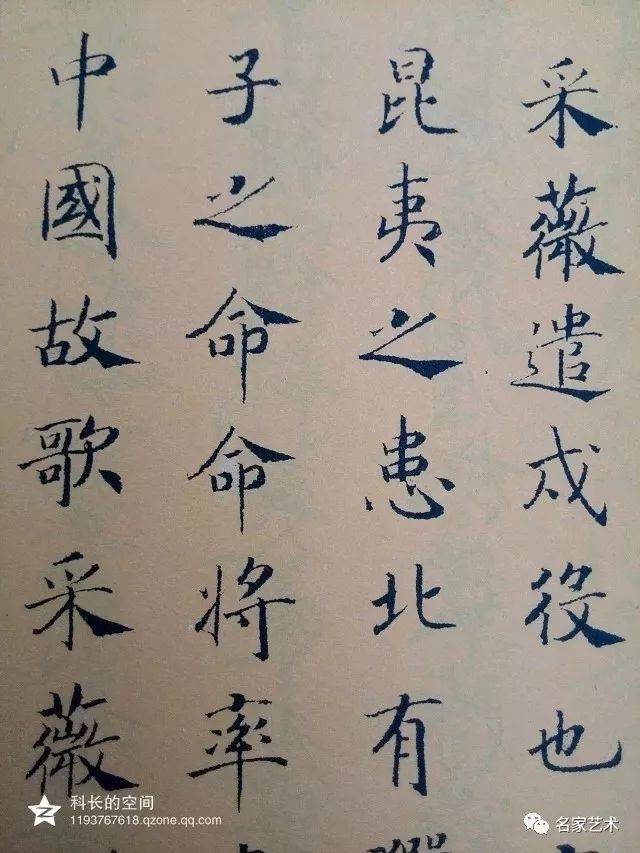 采薇遣戍役也
昆夷之患北有
子之命命将率
中國故歌采薇
科长的空间
1193767618.qzone.qq.com
名家艺术